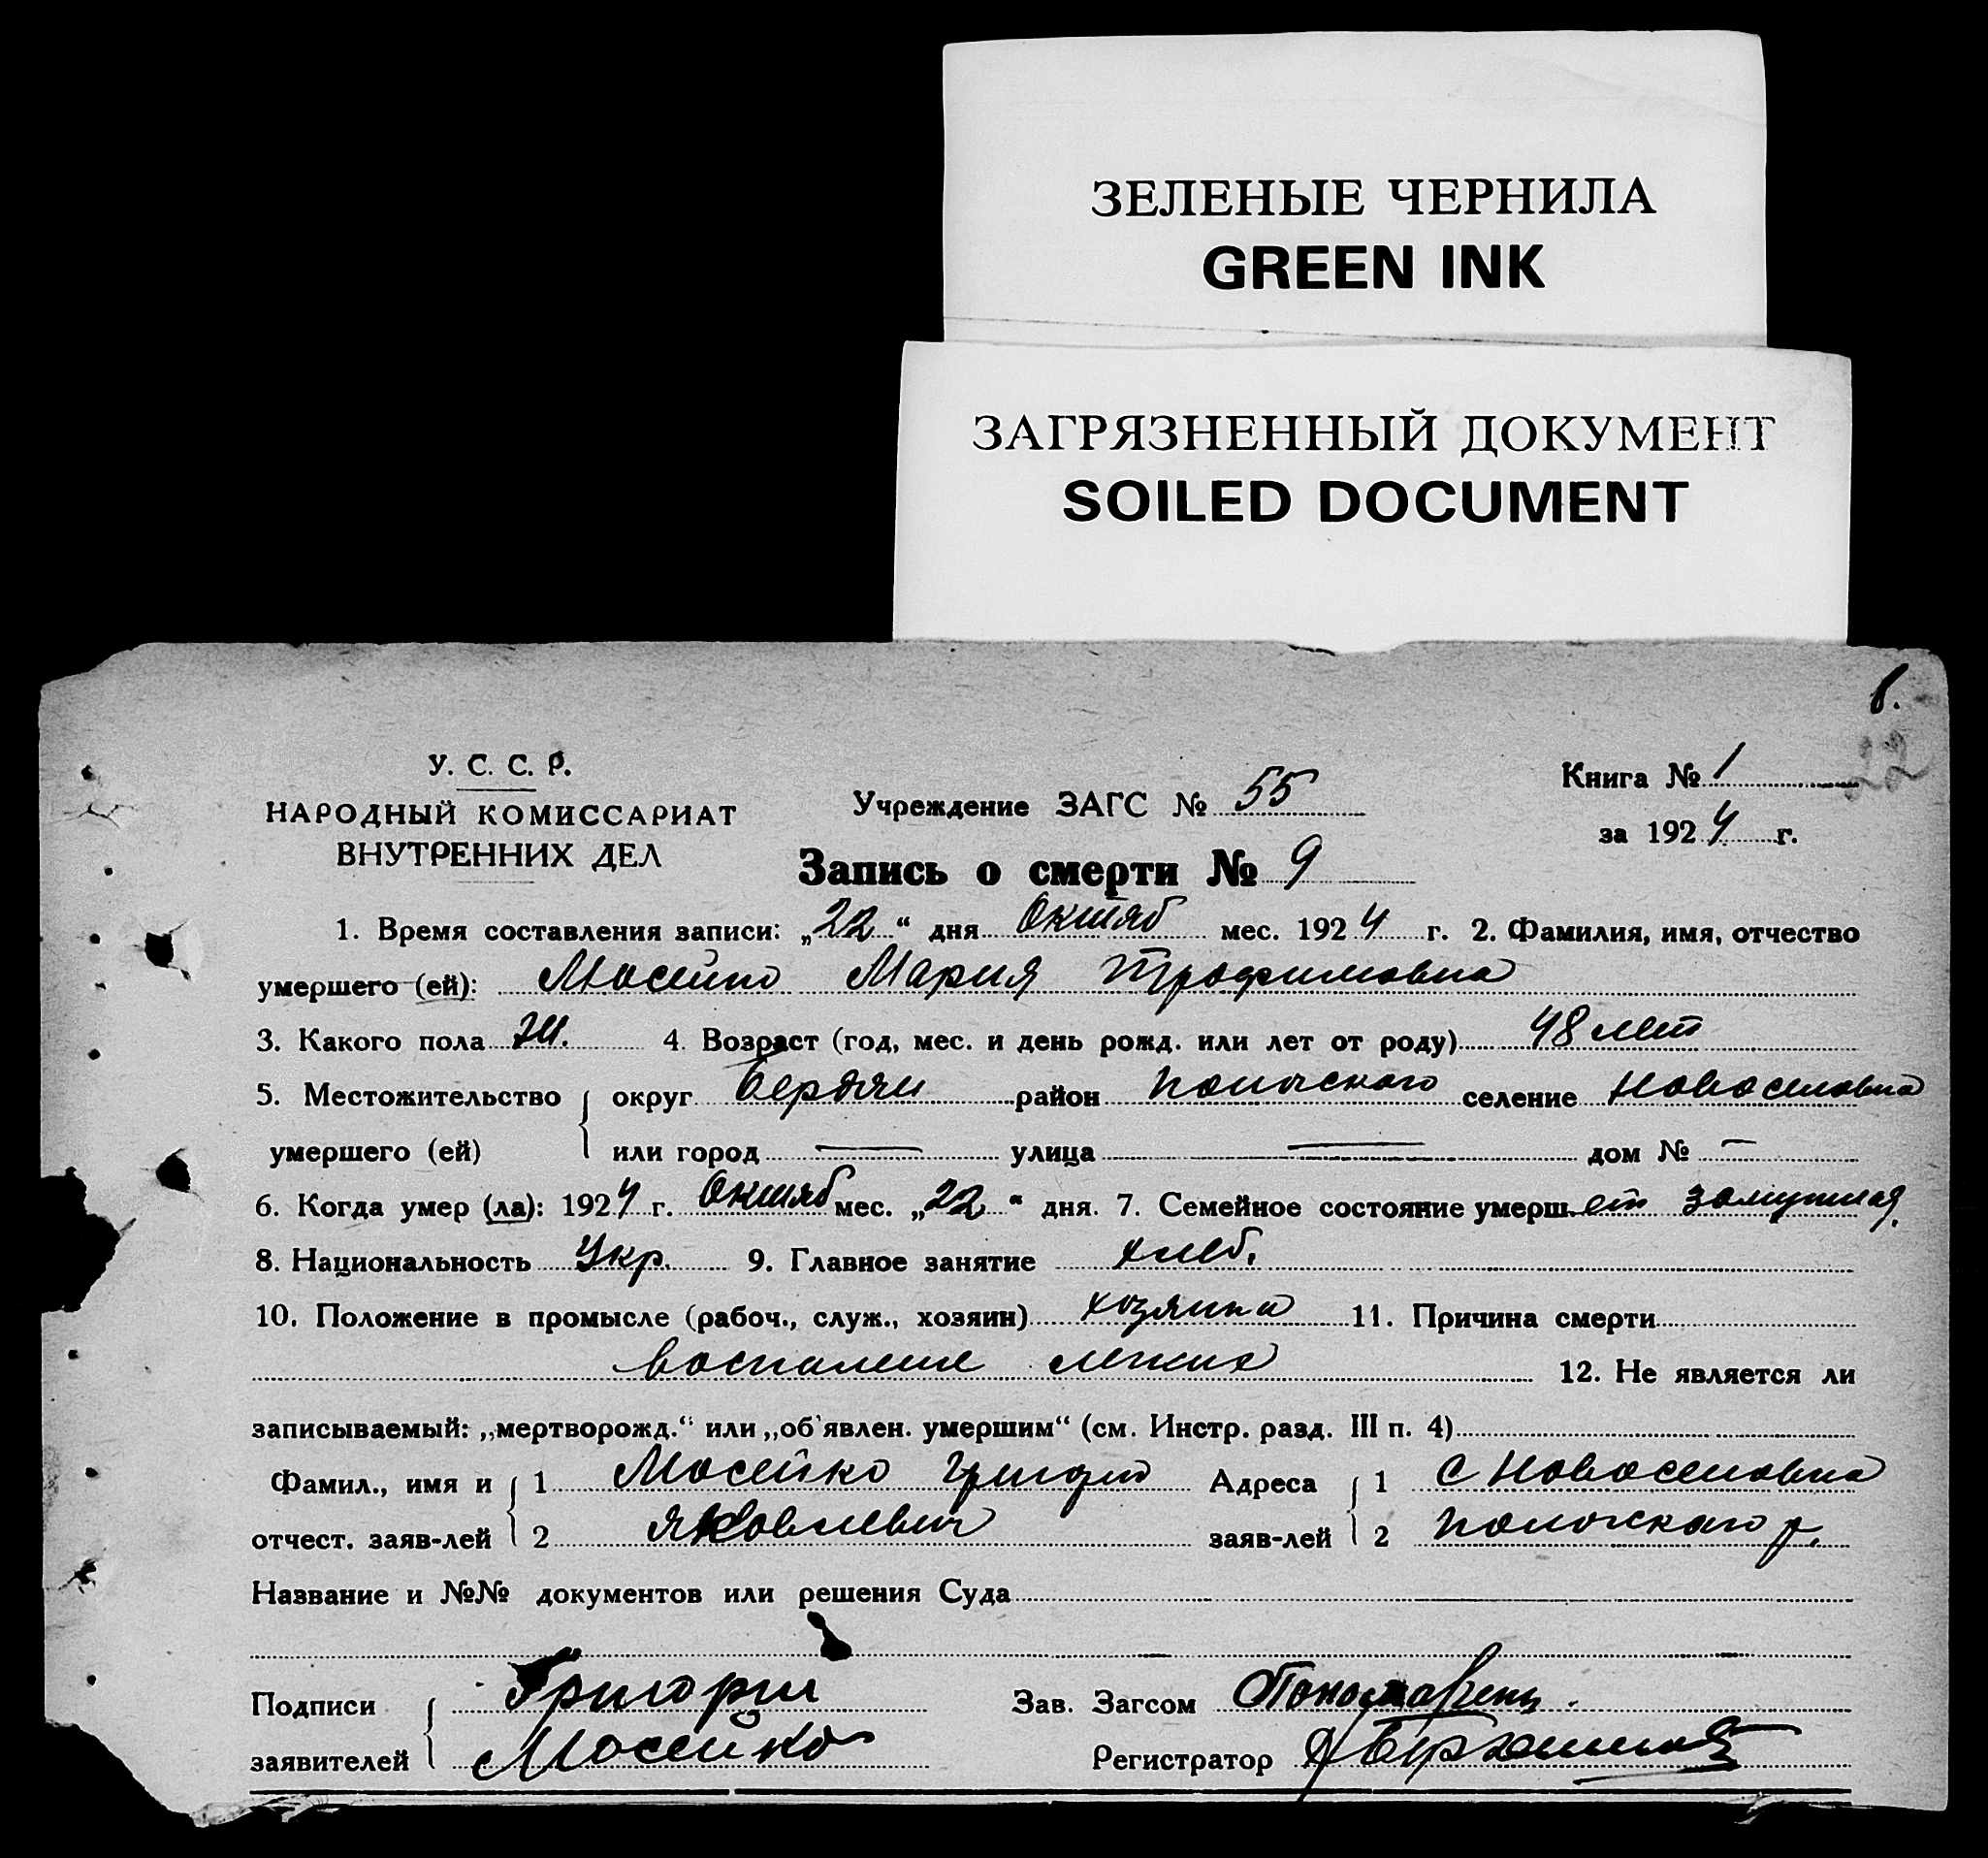 ЗЕЛЕНЫЕ ЧЕРНИЛА
GREEN INK
ЗАГРЯЗНЕННЫЙ ДОКУМЕНТ
SOILED DOCUMENT
У. С. С. Р.
НАРОДНЫЙ КОМИССАРИАТ
ВНУТРЕННИХ ДЕЛ
Учреждение ЗАГС № 55
Книга № 1
за 1924 г.
Запись о смерти № 9
1. Время составления записи: „22“ дня Октяб мес. 1924 г. 2. Фамилия, имя, отчество
умершего (ей): Мосейко Мария Трофимовна
3. Какого пола ж. 4. Возраст (год, мес. и день рожд. или лет от роду) 48 лет
5. Местожительство округ Бердян район Пологского селение Новоселовка
умершего (ей) или город — улица — дом № —
6. Когда умер (ла): 1924 г. Октяб мес. „22“ дня. 7. Семейное состояние умерш. замужная
8. Национальность Укр. 9. Главное занятие хлеб.
10. Положение в промысле (рабоч., служ., хозяин) хозяйка 11. Причина смерти
воспаление легких 12. Не является ли
записываемый: „мертворожд.“ или „об'явлен. умершим“ (см. Инстр. разд. III п. 4)
Фамил., имя и 1 Мосейко Григорий Адреса 1 с Новоселовка
отчест. заяв-лей 2 Яковлевич заяв-лей 2 Пологского р.
Название и №№ документов или решения Суда
Подписи Григорий Зав. Загсом
заявителей Мосейко Регистратор